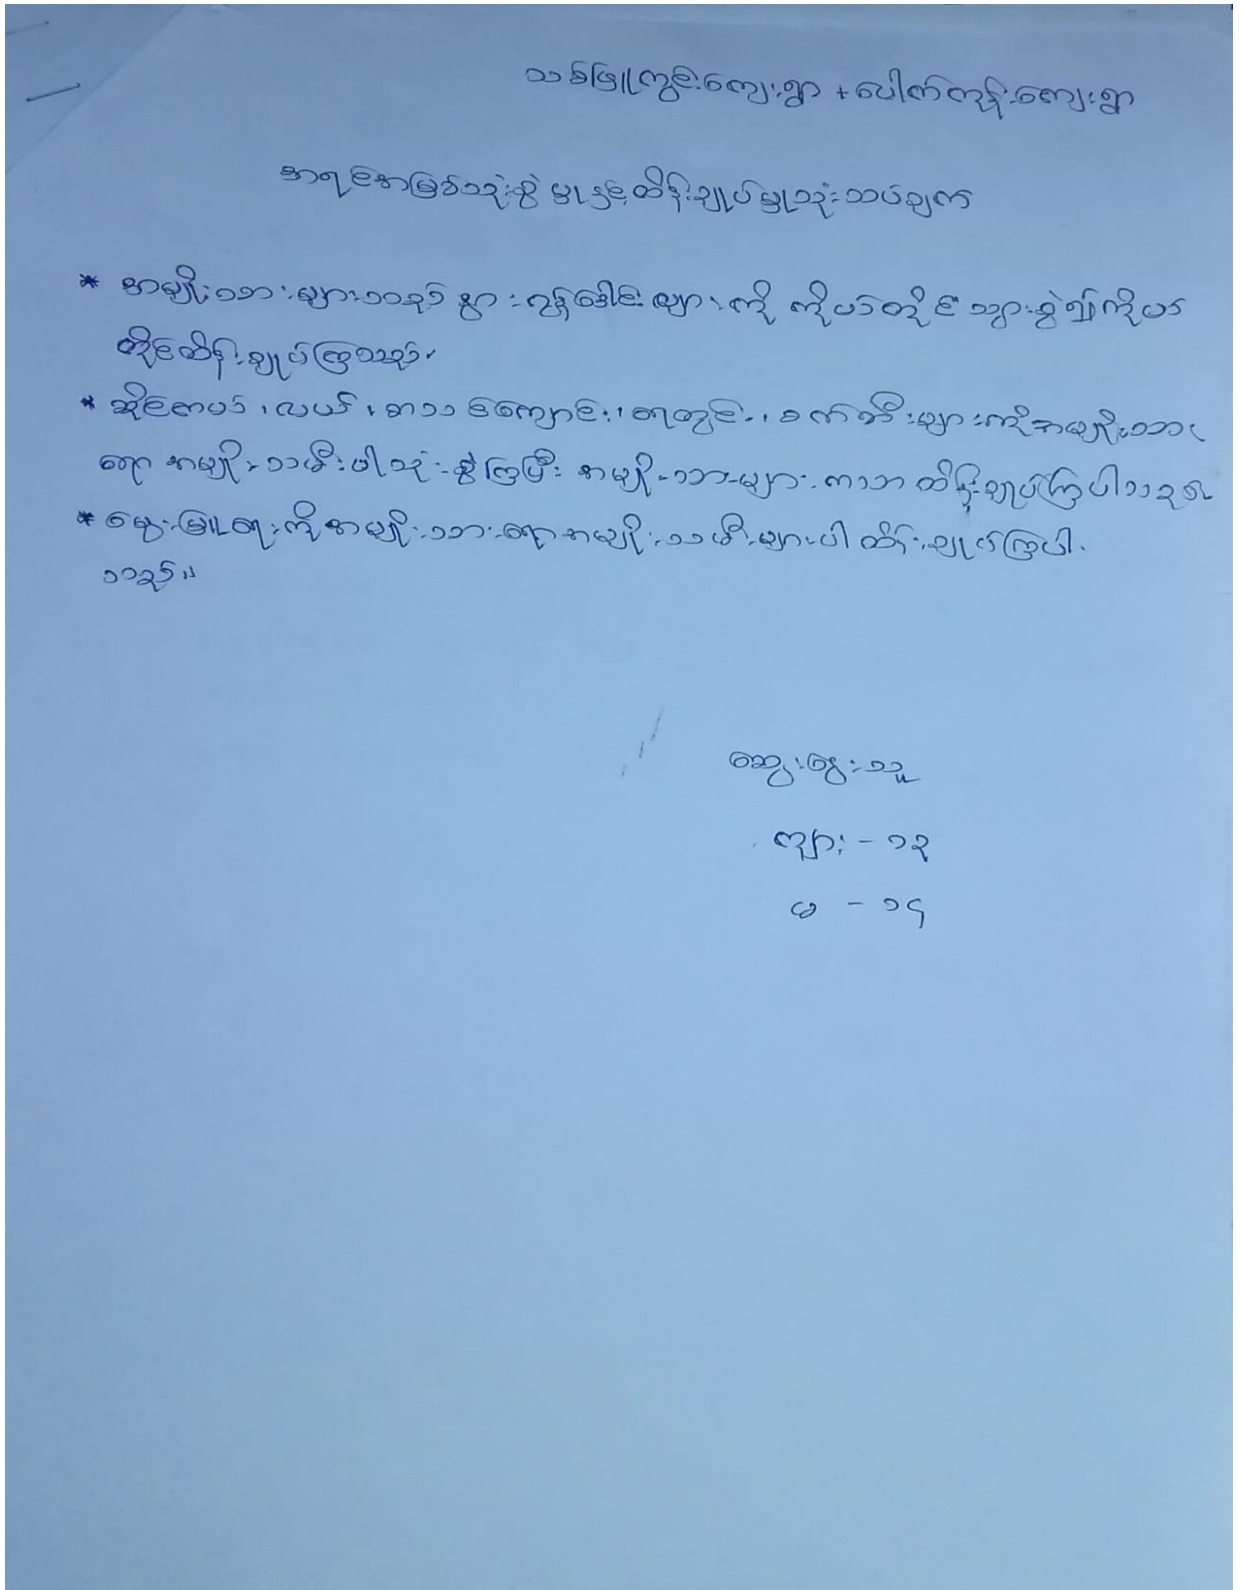 သစ်ဖြူကွင်းကျေးရွာ + ပေါက်ကုန်းကျေးရွာ
အရင်းအမြစ်သုံးစွဲမှုနှင့်ထိန်းချုပ်မှုသုံးသပ်ချက်
* အမျိုးသားများသည် နွား၊ ဖုန်းများကို ကိုယ်တိုင်သွားစွဲ၍ကိုယ်
တိုင်ထိန်းချုပ်ကြသည်။
* ဆိုင်ကယ်၊ လယ်၊ စာသင်ကျောင်း၊ ရေတွင်း၊ စက်ဘီးများကိုအမျိုးသား
ရော အမျိုးသမီးပါသုံးစွဲကြပြီး အမျိုးသားများကသာ ထိန်းချုပ်ကြပါသည်။
* မွေးမြူရေးကိုအမျိုးသားရောအမျိုးသမီးများပါ ထိန်းချုပ်ကြပါ
သည်။
ဆွေးနွေးသူ
ကျား - ၁၃
မ - ၁၄